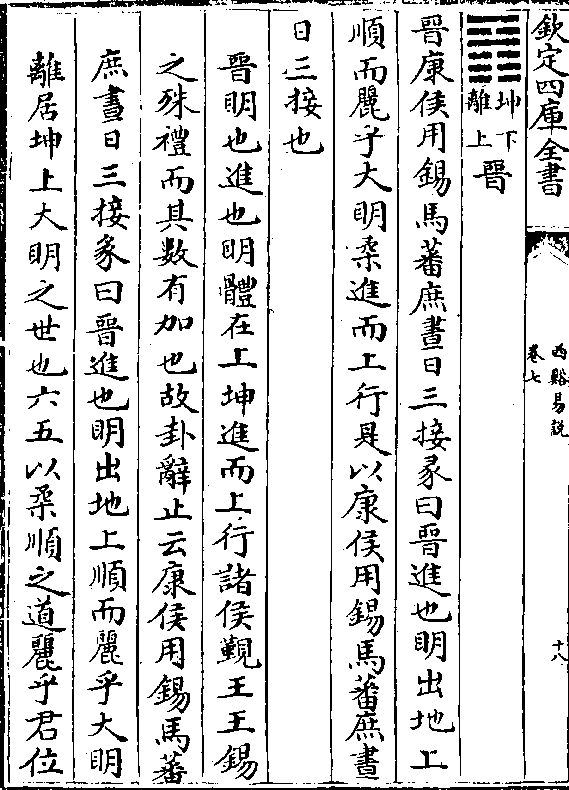 欽定四庫全書
西谿易說
卷七
十八
坤下
離上
晉
晉康侯用錫馬蕃庶晝日三接彖曰晉進也明出地上
順而麗乎大明柔進而上行是以康侯用錫馬蕃庶晝
日三接也
晉明也進也明體在上坤進而上行諸侯覲王王錫
之殊禮而其數有加也故卦辭止云康侯用錫馬蕃
庶晝日三接彖曰晉進也明出地上順而麗乎大明
離居坤上大明之世也六五以柔順之道麗乎君位